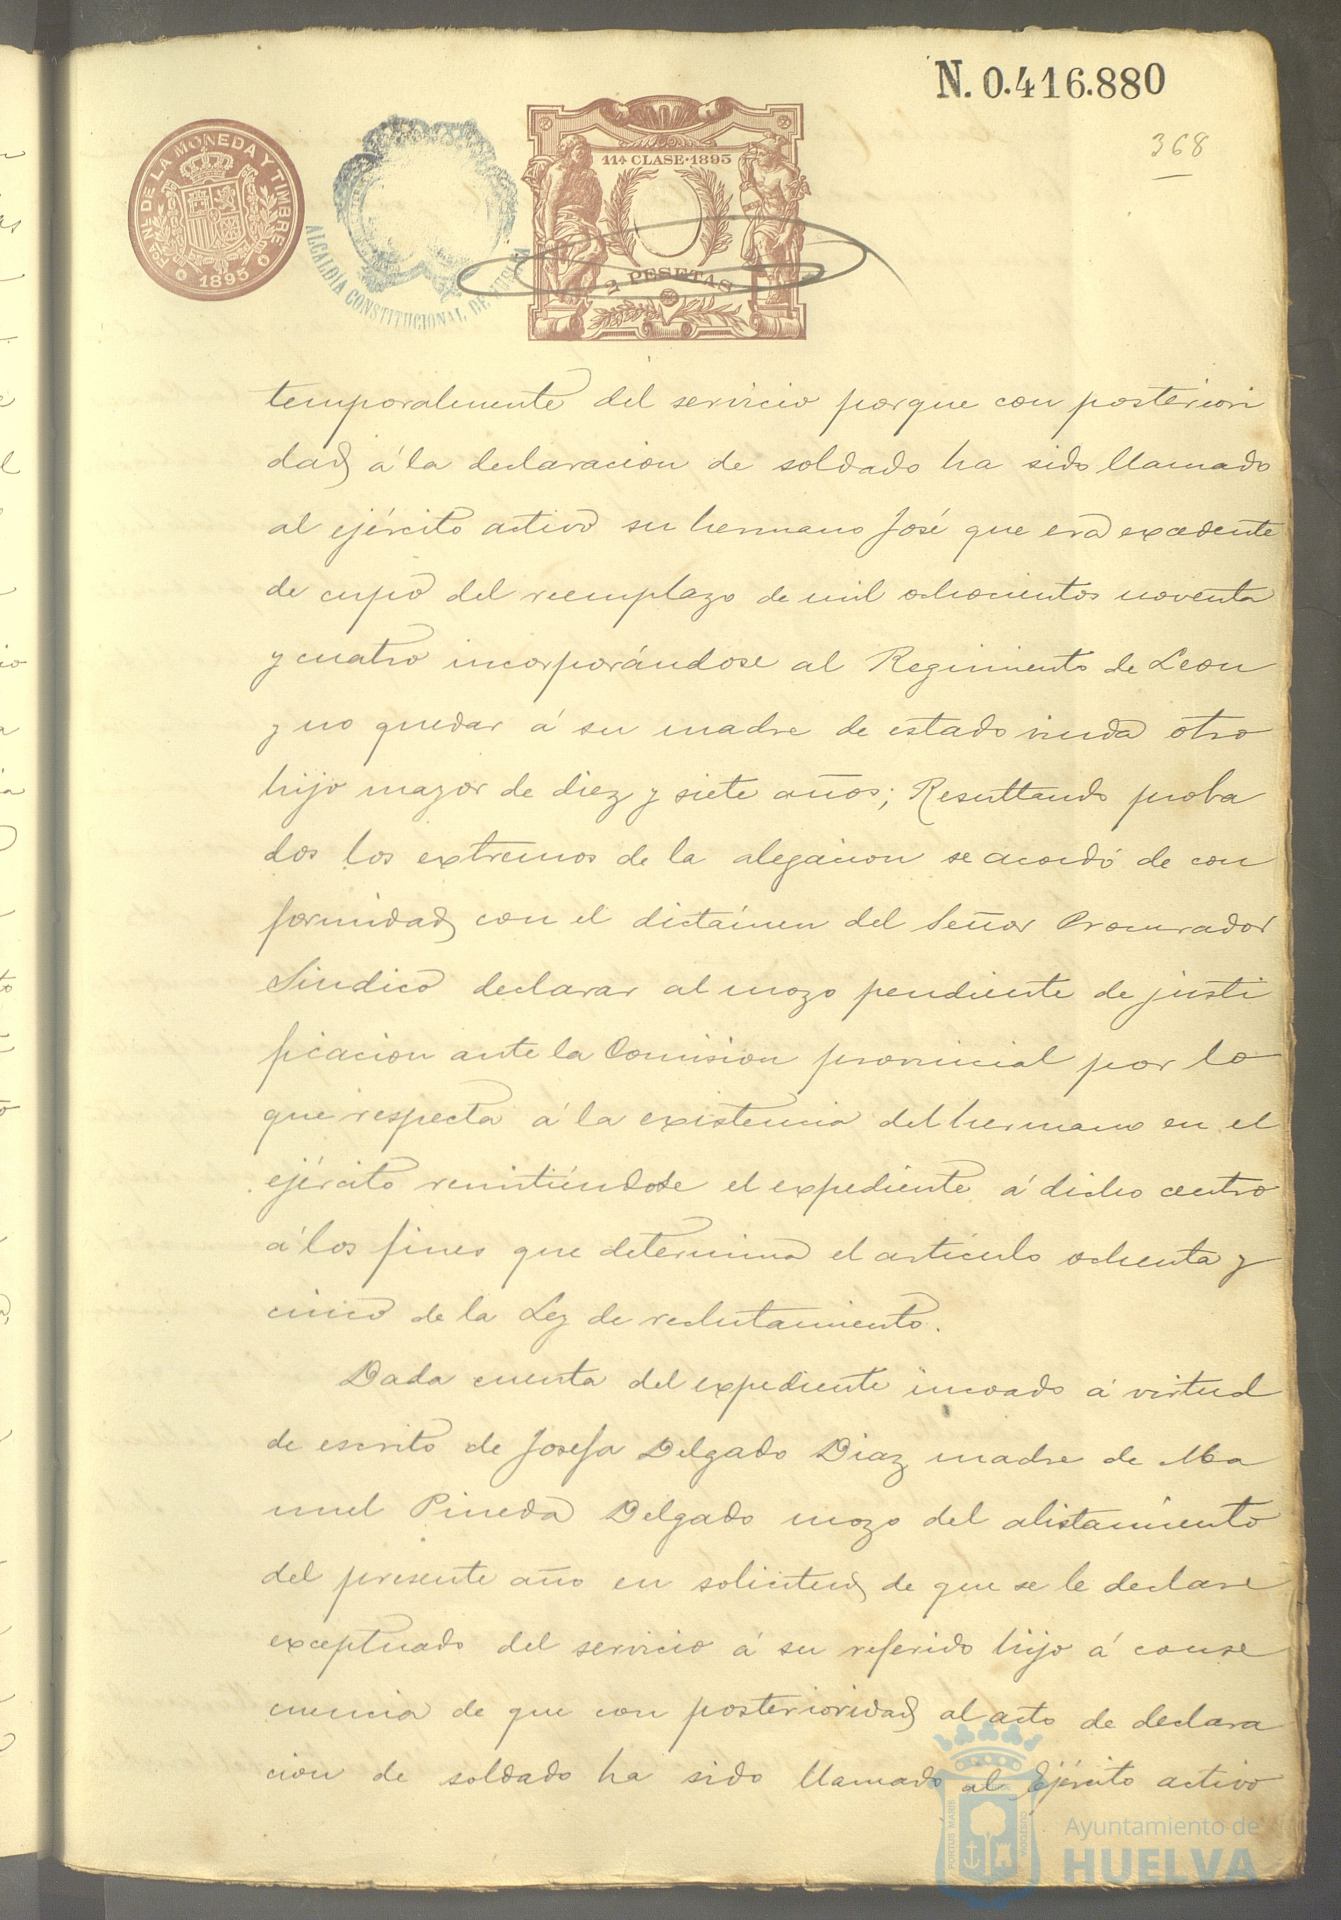 N. 0.416.880
368
FCA NAL DE LA MONEDA Y TIMBRE
1895
ALCALDÍA CONSTITUCIONAL DE HUELVA
11ª CLASE·1895
2 PESETAS
temporalmente del servicio porque con posteriori
dad á la declaracion de soldado ha sido llamado
al ejército activo su hermano José que era excedente
de cupo del reemplazo de mil ochocientos noventa
y cuatro incorporándose al Regimiento de Leon
y no quedar á su madre de estado viuda otro
hijo mayor de diez y siete años; Resultando proba
dos los extremos de la alegacion se acordó de con
formidad con el dictámen del Señor Procurador
Sindico declarar al mozo pendiente de justi
ficacion ante la Comision provincial por lo
que respecta á la existencia del hermano en el
ejército remitiéndose el expediente á dicho centro
á los fines que determina el artículo ochenta y
cinco de la Ley de reclutamiento.
Dada cuenta del expediente incoado á virtud
de escrito de Josefa Delgado Diaz madre de Ma
nuel Pineda Delgado mozo del alistamiento
del presente año en solicitud de que se le declare
exceptuado del servicio á su referido hijo á conse
cuencia de que con posterioridad al acto de declara
cion de soldado ha sido llamado al Ejército activo
PORTUS MARIS
CUSTODIA
Ayuntamiento de
HUELVA